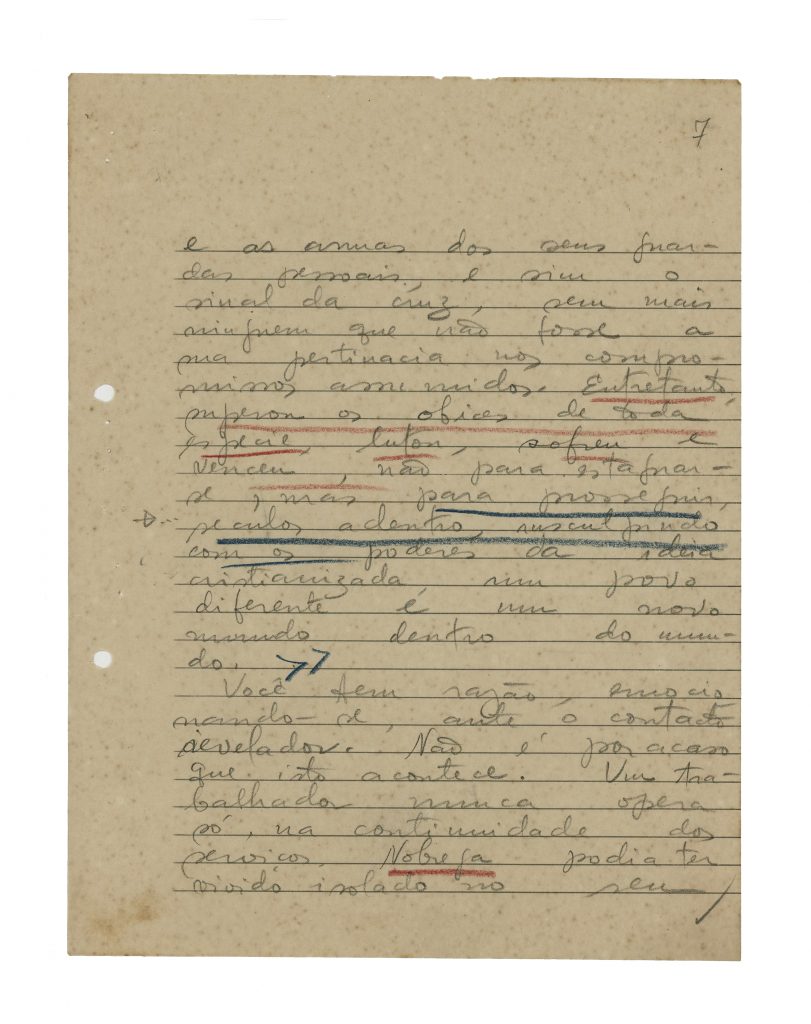 7
e as armas dos seus guar-
das pessoais, e sim o
sinal da cruz, sem mais
ninguem que não fosse a
sua pertinacia nos compro-
missos assumidos. Entretanto,
superou os obices de toda
especie, lutou, sofreu e
venceu, não para estagnar-
se, mas para prosseguir,
seculos adentro, esculpindo
com os poderes da ideia
cristianizada, um povo
diferente e um novo
mundo dentro do mun-
do. >>
Você tem razão, emocio
nando-se, ante o contacto
revelador. Não é por acaso
que isto acontece. Um tra-
balhador nunca opera
só, na continuidade dos
serviços. Nobrega podia ter
vivido isolado no seu